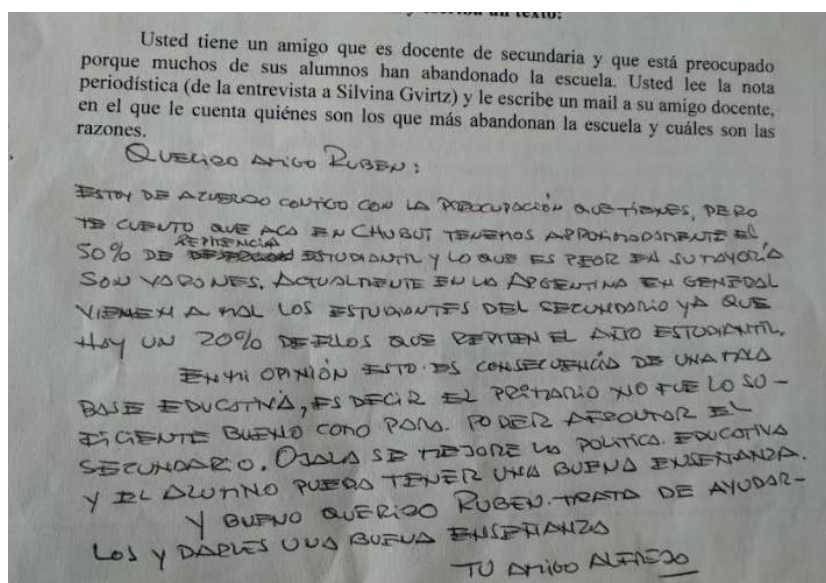 y escriba un texto:
Usted tiene un amigo que es docente de secundaria y que está preocupado
porque muchos de sus alumnos han abandonado la escuela. Usted lee la nota
periodística (de la entrevista a Silvina Gvirtz) y le escribe un mail a su amigo docente,
en el que le cuenta quiénes son los que más abandonan la escuela y cuáles son las
razones.
QUERIDO AMIGO RUBEN:
ESTOY DE AZUERDO CONTIGO CON LA PREOCUPACIÓN QUE TIENES, PERO
TE CUENTO QUE ACA EN CHUBUT TENEMOS APROXIMADAMENTE EL
REPITENCIA
50% DE ESTUDIANTIL Y LO QUE ES PEOR EN SU MAYORÍA
SON VARONES. ACTUALMENTE EN LA ARGENTINA EN GENERAL
VIENEN A MAL LOS ESTUDIANTES DEL SECUNDARIO YA QUE
HAY UN 20% DE ELLOS QUE REPITEN EL AÑO ESTUDIANTIL.
EN MI OPINIÓN ESTO ES CONSECUENCIA DE UNA MALA
BASE EDUCATIVA, ES DECIR EL PRIMARIO NO FUE LO SU-
FICIENTE BUENO COMO PARA PODER AFRONTAR EL
SECUNDARIO. OJALA SE MEJORE LA POLITICA EDUCATIVA
Y EL ALUMNO PUEDA TENER UNA BUENA ENSEÑANZA.
Y BUENO QUERIDO RUBEN TRATA DE AYUDAR-
LOS Y DARLES UNA BUENA ENSEÑANZA
TU AMIGO ALFREDO